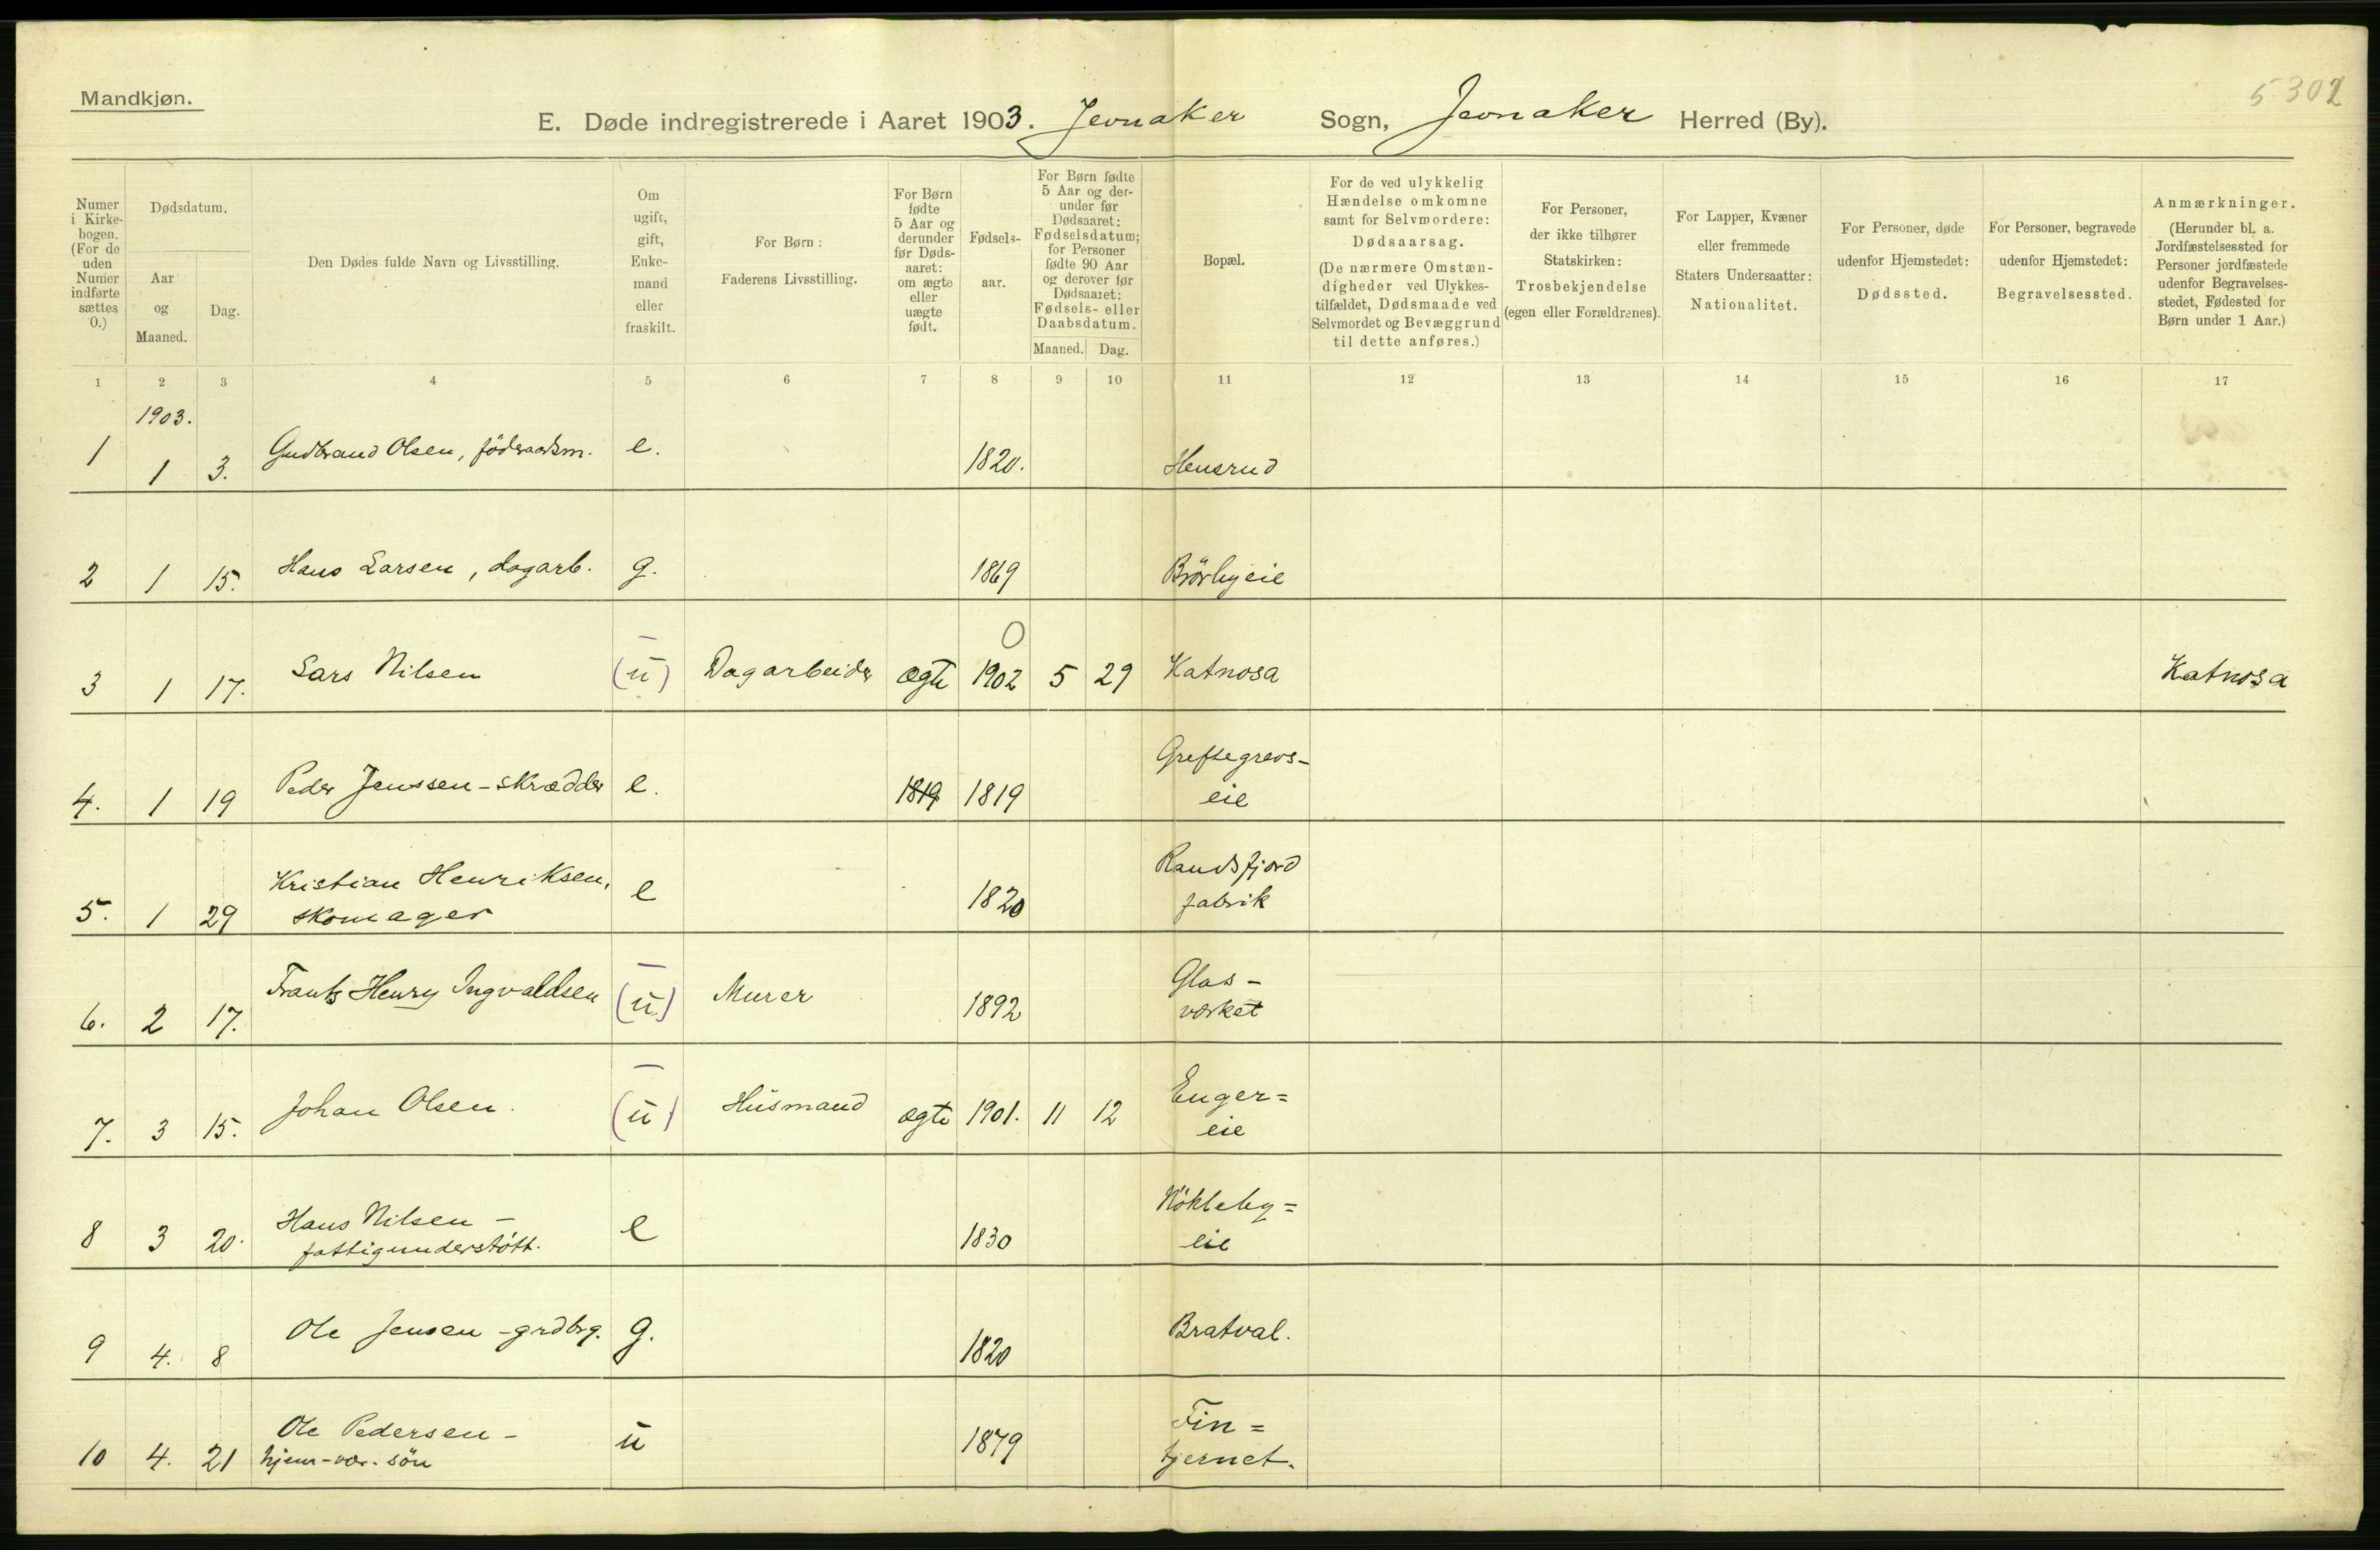 Mandkjøn.
5302
E. Døde indregistrerede i Aaret 1903. Jevnaker Sogn, Jevnaker Herred (By).
Numer i Kirkebogen. (For de uden Numer indførte sættes 0.)
Dødsdatum.
Aar og Maaned.
Dag.
Den Dødes fulde Navn og Livsstilling.
Om ugift, gift, Enkemand eller fraskilt.
For Børn: Faderens Livsstilling.
For Børn fødte 5 Aar og derunder før Dødsaaret: om ægte eller uægte født.
Fødselsaar.
For Børn fødte 5 Aar og derunder før Dødsaaret: Fødselsdatum; for Personer fødte 90 Aar og derover før Dødsaaret: Fødsels- eller Daabsdatum.
Maaned. Dag.
Bopæl.
For de ved ulykkelig Hændelse omkomne samt for Selvmordere: Dødsaarsag. (De nærmere Omstændigheder ved Ulykkestilfældet, Dødsmaade ved Selvmordet og Bevæggrund til dette anføres.)
For Personer, der ikke tilhører Statskirken: Trosbekjendelse (egen eller Forældrenes).
For Lapper, Kvæner eller fremmede Staters Undersaatter: Nationalitet.
For Personer, døde udenfor Hjemstedet: Dødssted.
For Personer, begravede udenfor Hjemstedet: Begravelsessted.
Anmærkninger. (Herunder bl. a. Jordfæstelsessted for Personer jordfæstede udenfor Begravelsesstedet, Fødested for Børn under 1 Aar.)
1 2 3 4 5 6 7 8 9 10 11 12 13 14 15 16 17
1903.
1 1 3. Gudbrand Olsen, föderaadsm. e. 1820. Hensrud
2 1 15. Hans Larsen, dagarb. g. 1869 Brörbyeie
0
3 1 17. Lars Nilsen (u) Dagarbeider ægte 1902 5 29 Katnosa Katnosa
4. 1 19 Peder Jenssen - skrædder e. 1819 1819 Greftegrevs-
eie
5. 1 29 Kristian Henriksen, e 1820 Randsfjord
skomager fabrik
6. 2 17. Frants Henry Ingvaldsen (u) Murer 1892 Glas-
værket
7. 3 15. Johan Olsen. (u) Husmand ægte 1901. 11 12 Enger=
eie
8 3 20. Hans Nilsen - e 1830 Nökleby=
fattigunderstött. eie
9 4. 8 Ole Jensen - grdbrg. g. 1820 Bratval.
10 4. 21 Ole Pedersen - u 1879 Fin=
hjem-vær. sön tjernet.